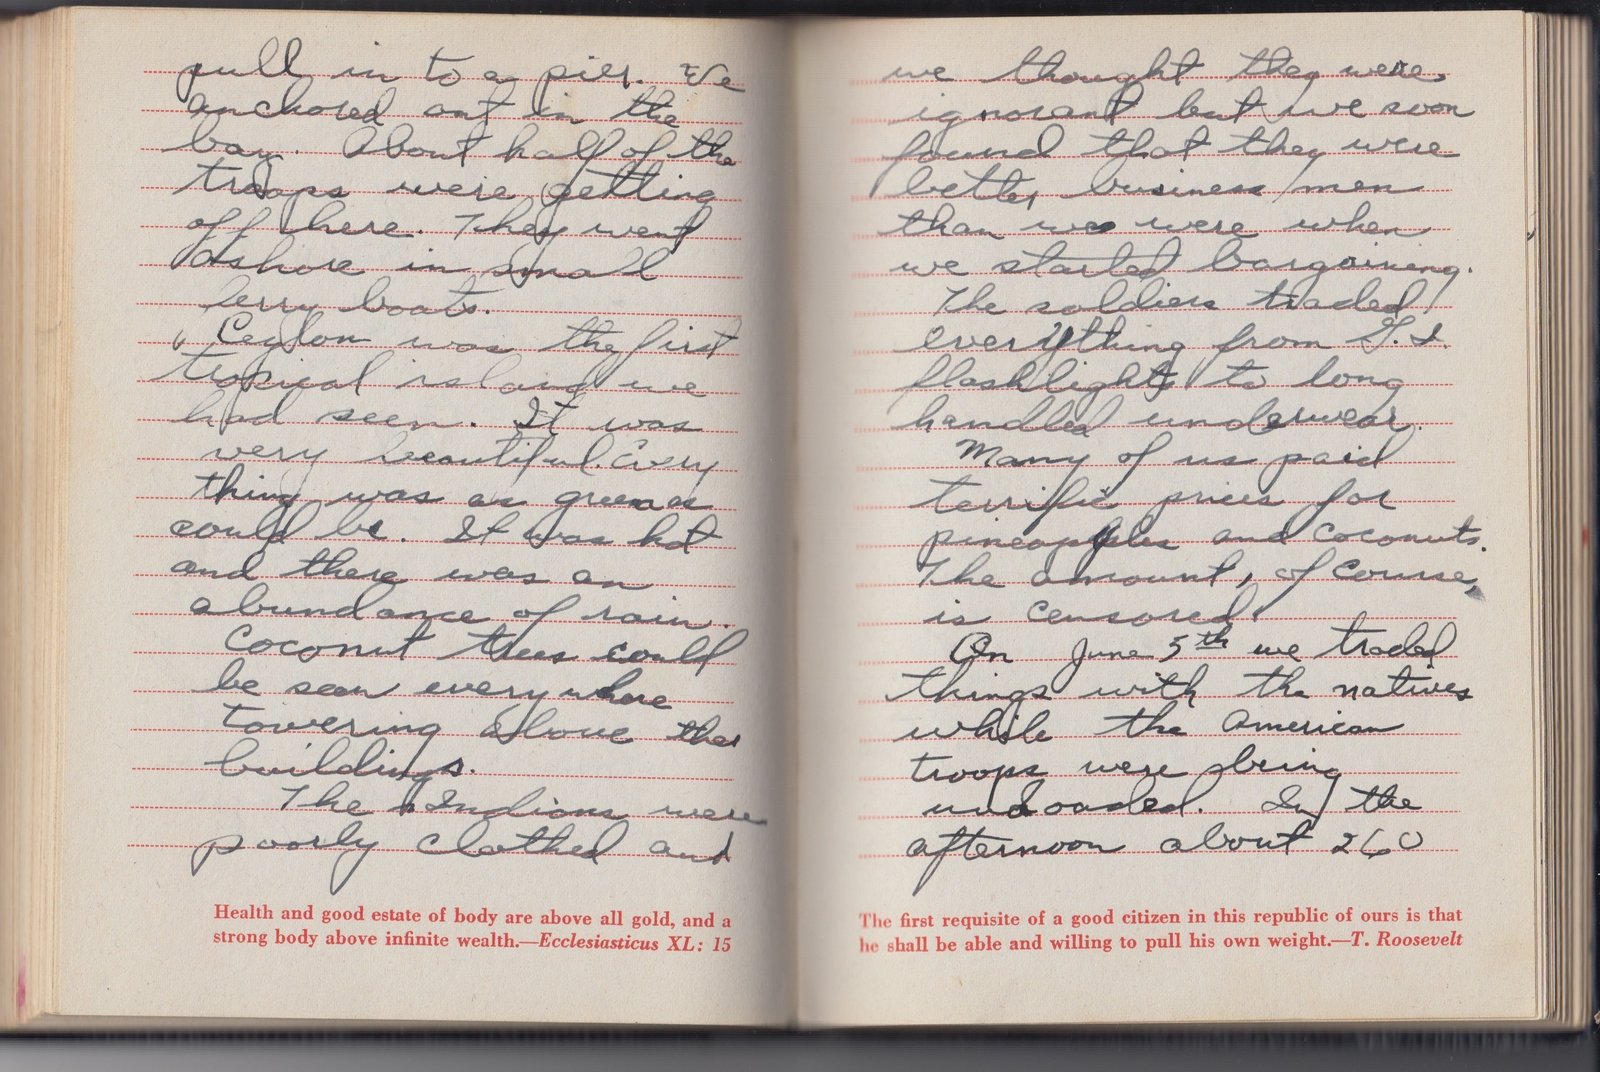 pull in to a pier. We
anchored out in the
bay. About half of the
troops were getting
off here. They went
ashore in small
ferry boats.
Ceylon was the first
tropical island we
had seen. It was
very beautiful. Every
thing was as green as
could be. It was hot
and there was an
abundance of rain.
Coconut trees could
be seen everywhere
towering above the
buildings.
The Indians were
poorly clothed and
Health and good estate of body are above all gold, and a
strong body above infinite wealth.—Ecclesiasticus XL: 15
we thought they were
ignorant but we soon
found that they were
better business men
than we were when
we started bargaining.
The soldiers traded
everything from G.I.
flashlights to long
handled underwear.
Many of us paid
terrific prices for
pineapples and coconuts.
The amount, of course,
is censored.
On June 5th we traded
things with the natives
while the American
troops were being
unloaded. In the
afternoon about 260
The first requisite of a good citizen in this republic of ours is that
he shall be able and willing to pull his own weight.—T. Roosevelt